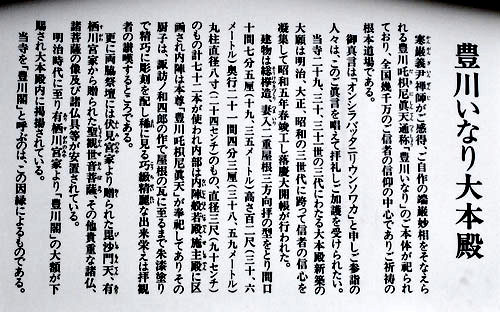 豊川いなり大本殿
寒巌義尹禅師のご感得、ご自作の端厳妙相をそなえら
れる豊川吒枳尼眞天通称、「豊川いなり」のご本体が祀られ
ており、全国幾千万のご信者の信仰の中心でありご祈祷の
根本道場である。
御真言は「オンシラバッタニリウンソワカ」と申しご参詣の
人々は、このご真言を唱えて拝礼しご加護を受けられたい。
当寺二十九、三十、三十一世の三代にわたる大本殿新築の
大願は明治、大正、昭和の三世代に跨って信者の信心を
凝集して昭和五年春竣工し落慶大開帳が行われた。
建物は総欅造、妻入二重屋根三方向拝の型をとり間口
十間七分五厘(十九、三五メートル)高さ百二尺(三十、六
メートル)奥行二十一間四分三厘(三十八、五九メートル)
丸柱直径八寸(二十四センチ)のもの、直径三尺(九十センチ)
のもの計七十二本が使われ内部は内陣般若殿施主殿に区
画され内陣は本尊「豊川吒枳尼眞天」が奉祀してありその
厨子は、諏訪ノ和四郎の作で屋根の瓦に至るまで朱漆塗り
で精巧に彫刻を配し稀に見る巧緻精麗な出来栄えは拝観
者の讃嘆するところである。
更に両脇祭壇には伏見宮家より贈られた毘沙門天、有
栖川宮家から贈られた聖観世音菩薩、その他貴重な諸仏、
諸菩薩の像及び諸仏具等が安置されている。
明治時代に至り有栖川宮家より、「豊川閣」の大額が下
賜され大本殿内に掲揚されている。
当寺を、「豊川閣」と呼ぶのは、この因縁によるものである。